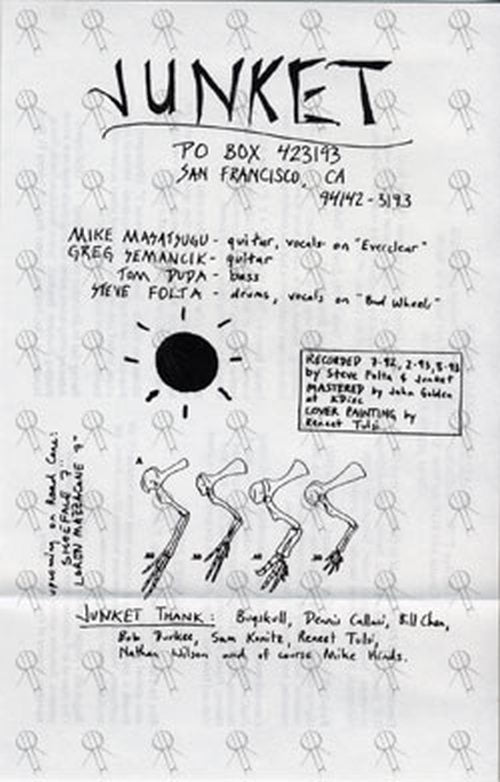 JUNKET
PO BOX 423193
SAN FRANCISCO, CA
94142-3193
MIKE MASATSUGU - guitar, vocals on "Everclear"
GREG SEMANCIK - guitar
TOM DUDA - bass
STEVE FOLTA - drums, vocals on "Bud Wheels"
RECORDED 7-92, 2-93, 8-93
by Steve Folta & Junket
MASTERED by John Golden
at KDisc
COVER PAINTING by
Reneet Tulsi
upcoming on Road Cone:
SHOEFACE 7"
LOREN MAZZACANE 7"
A
JUNKET THANK: Bugskull, Dennis Callaci, Bill Chen,
Bob Durkee, Sam Kunitz, Reneet Tulsi,
Nathan Wilson and of course Mike Hinds.